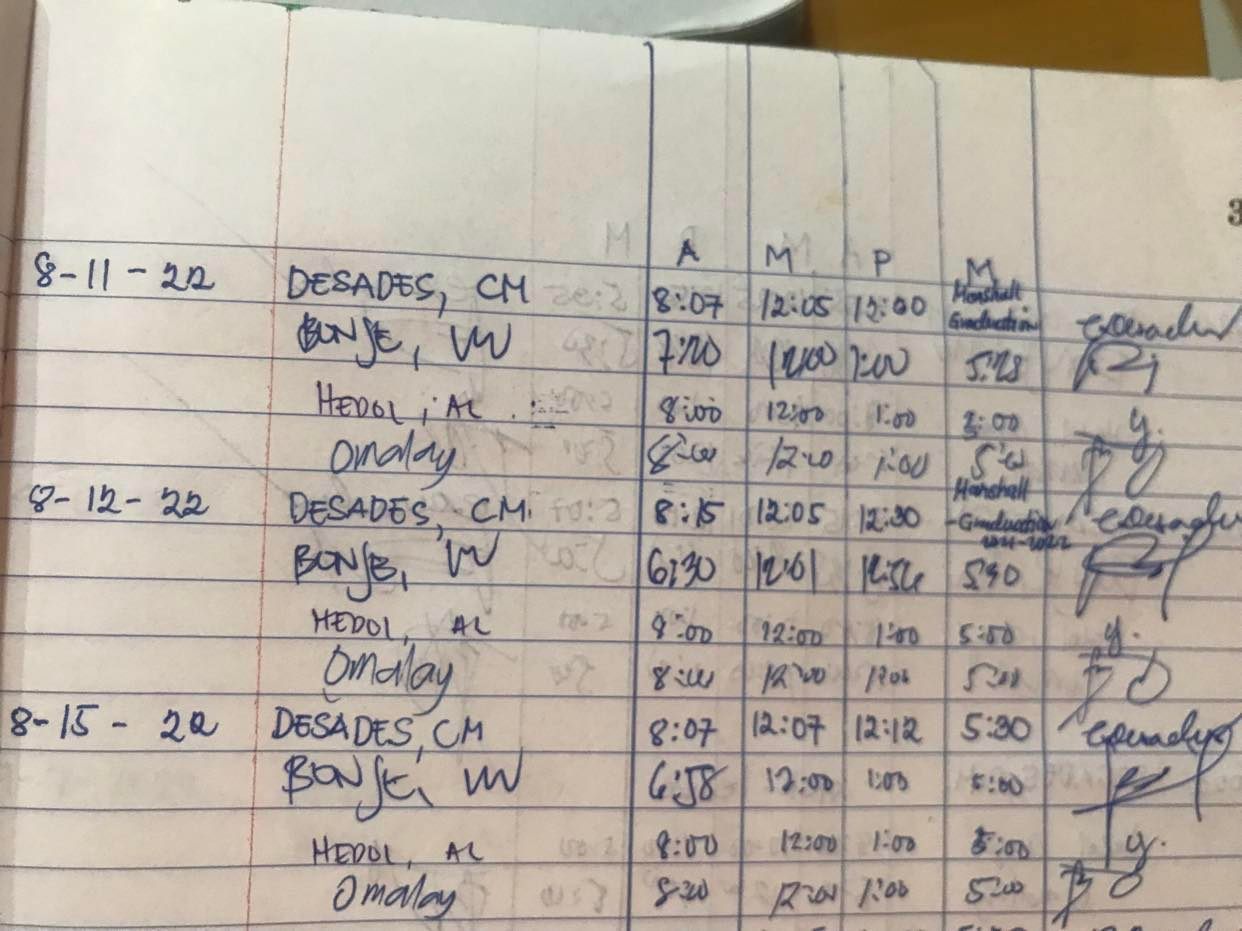 3
A M P M
8-11-22 DESADES, CM 8:07 12:05 12:00 Marshall Graduation
BONJE, VW 7:20 12:00 1:00 5:28
HEDOL, AL 8:00 12:00 1:00
Omalay 8:00 12:00 1:00 5:00
8-12-22 DESADES, CM. 8:15 12:05 12:30 Marshall -Graduation 2021-2022
BONJE, VW 6:30 12:01 12:54 5:30
HEDOL, AL 8:00 12:00 1:00 5:00
Omalay 8:00 12:00 1:00 5:00
8-15-22 DESADES, CM 8:07 12:07 12:12 5:30
BONJE, VW 6:58 12:00 1:00 5:00
HEDOL, AL 8:00 12:00 1:00 5:00
Omalay 8:00 12:00 1:00 5:00